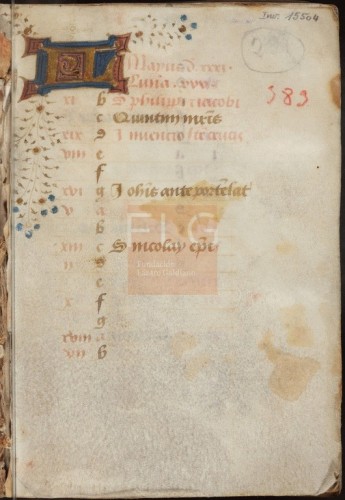 Inv. 15504
KL Mayus d. xxxi.
Luna xxx.
383
xi b S philippi iacobi
c Quintini mris
xix d Inventio s crucis
viii e
f
xvi g Iohis ante portē lat
v a
b
xiii c S nicolay epi
ii d
e
x f
g
xviii a
vii b
FLG
Fundación
Lázaro Galdiano